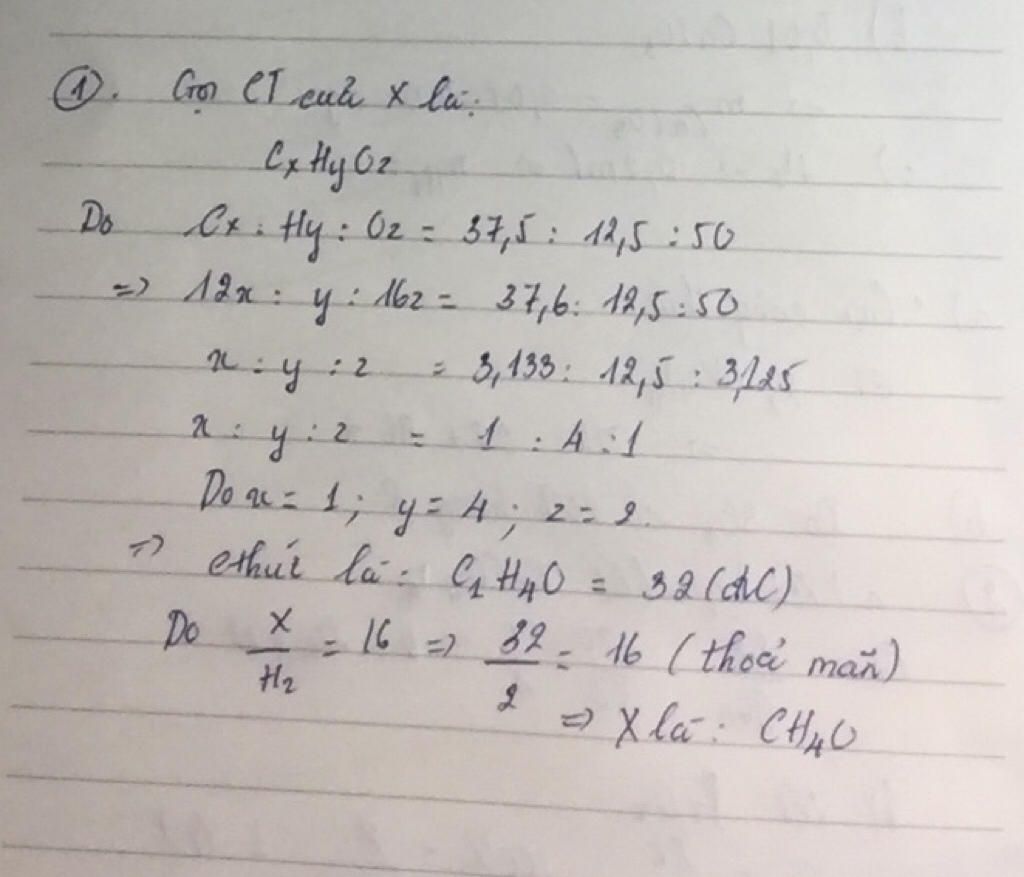 ①. Gọi CT của X là:
CxHyOz
Do Cx : Hy : Oz = 37,5 : 12,5 : 50
=> 12x : y : 16z = 37,6 : 12,5 : 50
x : y : z = 3,133 : 12,5 : 3,125
x : y : z = 1 : 4 : 1
Do x = 1 ; y = 4 ; z = 2.
=> cthức là : C₁H₄O = 32 (đvC)
Do X/H₂ = 16 => 32/2 = 16 (thoả mãn)
=> X là : CH₄O